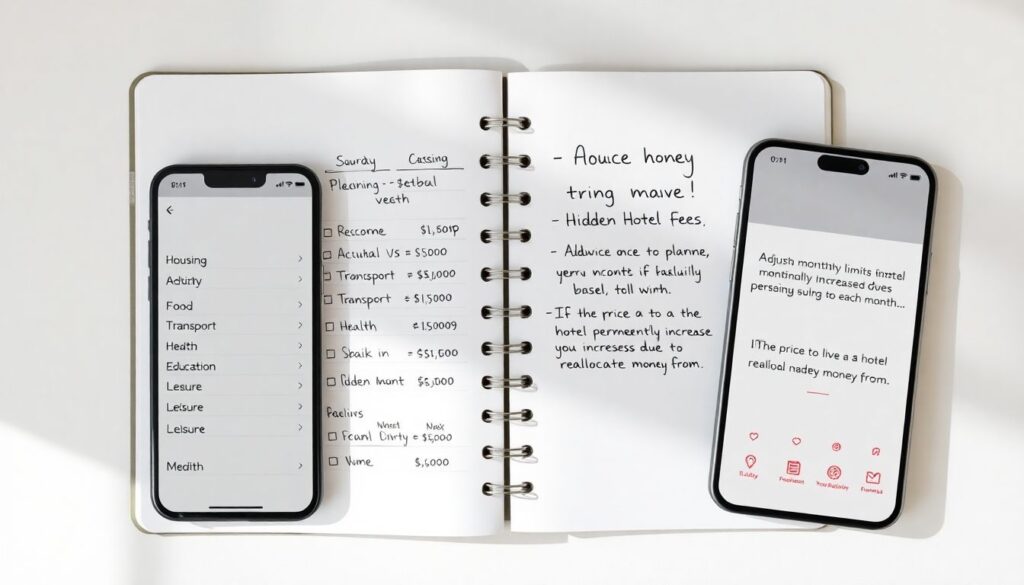 Housing
Adurly
Food
Transport
Health
Education
Lesure
Leisure
Leisure
Medith
Sourdy Cassing
Plecining -- Setbul
vecth
Rescome $1,501P
Actuhal Vs = $5000
Transport = $5,000
Transport = $1,5000
Health
Sbaik in = $51,600
Inant $5,000
Faclivs
Fcanl Divrty = $5,000
Wume $,5000
- Aouice honey
tring maive!
- Hidden Hotel Fees.
- Aldwice once to planne,
yerv nconte if fasluily
basel, toll winth.
- If the price a to a the
hotel permeently increase
you incresess due to
reallocate money from.
Adjush monthly limits
montinally increased dues
persainy sulng to each month...
IThe price to live a a hotel
realloal nadey money from.